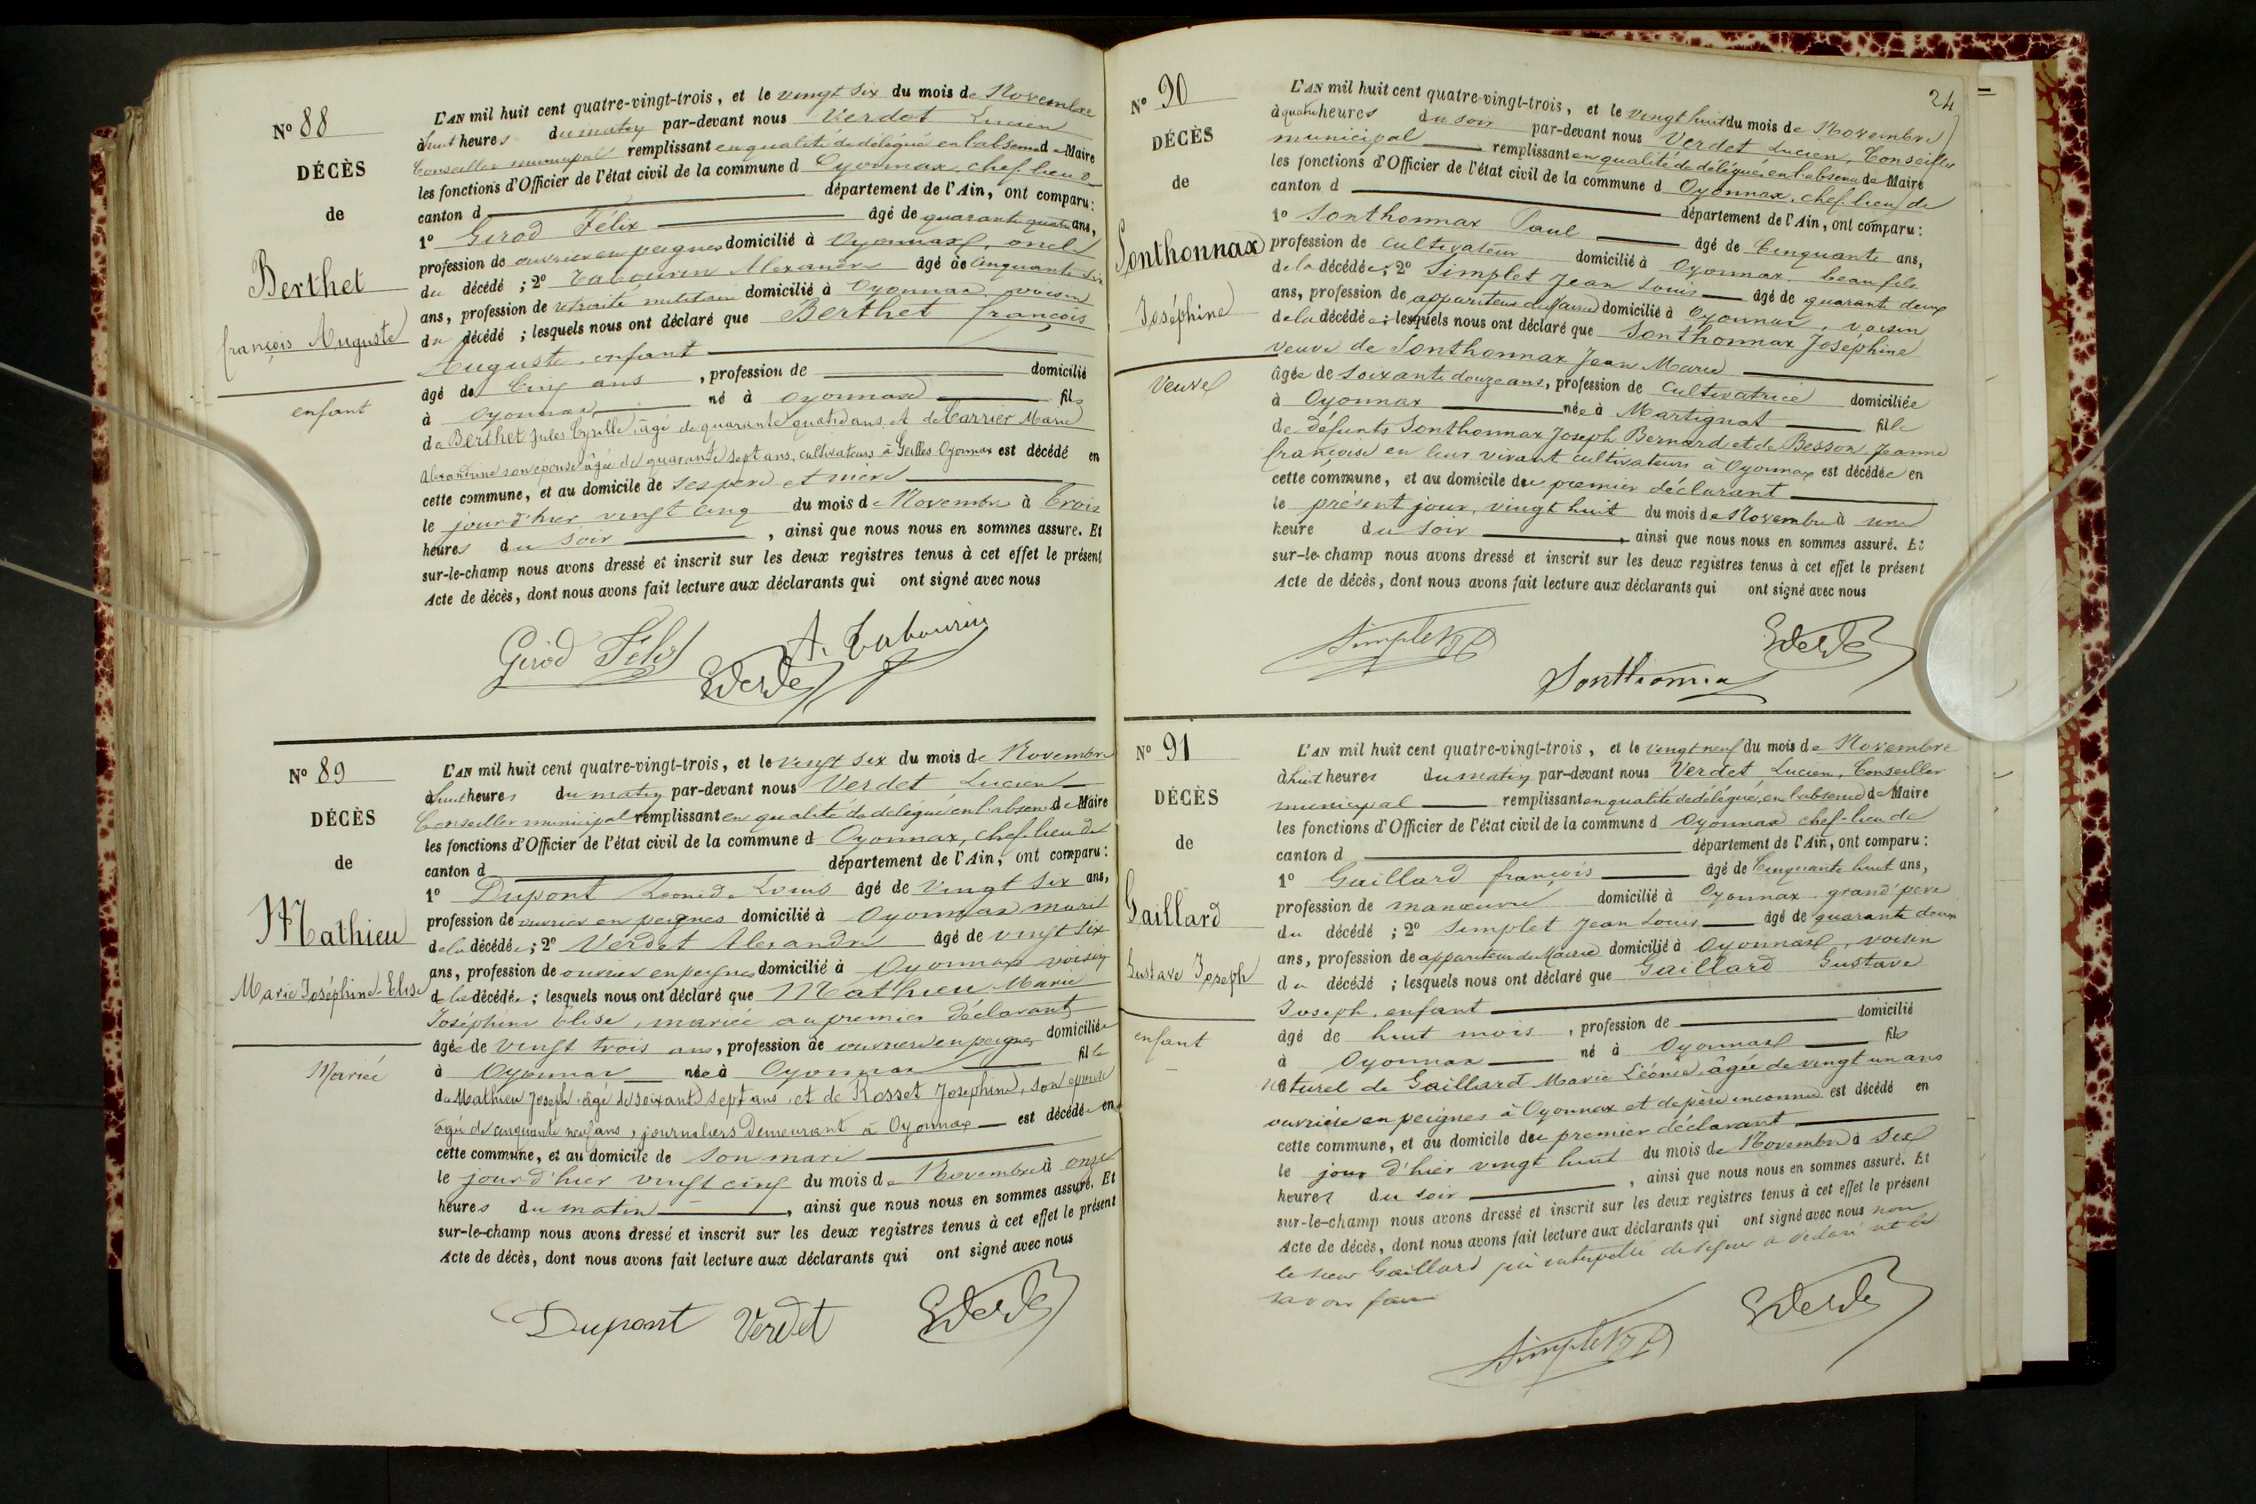 Nº 88
DÉCÈS
de
Berthet
françois Auguste
enfant
L'AN mil huit cent quatre-vingt-trois, et le vingt six du mois de Novembre
à huit heures du matin par-devant nous Verdet Lucien
Conseiller municipal remplissant en qualité de délégué en l'absence de Maire
les fonctions d'Officier de l'état civil de la commune d Oyonnax, chef lieu de
canton d département de l'Ain, ont comparu:
1º Girod Félix âgé de quarante quatre ans,
profession de ouvrier en peignes domicilié à Oyonnax, oncle
du décédé ; 2º Tabourin Alexandre âgé de Cinquante six
ans, profession de retraité militaire domicilié à Oyonnax, voisin
du décédé ; lesquels nous ont déclaré que Berthet françois
Auguste, enfant
âgé de Cinq ans , profession de domicilié
à Oyonnax né à Oyonnax fils
de Berthet Jules Cyrille, âgé de quarante quatre ans et de Carrier Marie
Alexandrine son épouse âgée de quarante sept ans, cultivateurs à Geilles Oyonnax est décédé en
cette commune, et au domicile de ses père et mère
le jour d'hier vingt cinq du mois de Novembre à trois
heures du soir , ainsi que nous nous en sommes assuré. Et
sur-le-champ nous avons dressé et inscrit sur les deux registres tenus à cet effet le présent
Acte de décès, dont nous avons fait lecture aux déclarants qui ont signé avec nous
Girod Félix A. Tabourin
Verdet
Nº 89
DÉCÈS
de
Mathieu
Marie Joséphine Elise
Mariée
L'AN mil huit cent quatre-vingt-trois, et le vingt six du mois de Novembre
à huit heures du matin par-devant nous Verdet Lucien
Conseiller municipal remplissant en qualité de délégué en l'absence de Maire
les fonctions d'Officier de l'état civil de la commune d Oyonnax, chef lieu de
canton d département de l'Ain, ont comparu:
1º Dupont Louis âgé de vingt six ans,
profession de ouvrier en peignes domicilié à Oyonnax mari
de la décédée ; 2º Verdet Alexandre âgé de vingt six
ans, profession de ouvrier en peignes domicilié à Oyonnax voisin
de la décédée ; lesquels nous ont déclaré que Mathieu Marie
Joséphine Elise, mariée au premier déclarant
âgée de vingt trois ans, profession de ouvrière en peignes domiciliée
à Oyonnax née à Oyonnax fille
de Mathieu Joseph, âgé de soixante sept ans et de Rosset Joséphine, son épouse
âgée de cinquante neuf ans, journaliers demeurant à Oyonnax est décédée en
cette commune, et au domicile de son mari
le jour d'hier vingt cinq du mois de Novembre à onze
heures du matin , ainsi que nous nous en sommes assuré. Et
sur-le-champ nous avons dressé et inscrit sur les deux registres tenus à cet effet le présent
Acte de décès, dont nous avons fait lecture aux déclarants qui ont signé avec nous
Dupont Verdet Verdet
24
Nº 90
DÉCÈS
de
Sonthonnax
Joséphine
Veuve
L'AN mil huit cent quatre-vingt-trois, et le vingt huit du mois de Novembre
à quatre heures du soir par-devant nous Verdet Lucien, Conseiller
municipal remplissant en qualité de délégué en l'absence de Maire
les fonctions d'Officier de l'état civil de la commune d Oyonnax, chef lieu de
canton d département de l'Ain, ont comparu:
1º Sonthonnax Paul âgé de Cinquante ans,
profession de Cultivateur domicilié à Oyonnax beau fils
de la décédée ; 2º Simplet Jean Louis âgé de quarante deux
ans, profession de appariteur de Mairie domicilié à Oyonnax, voisin
de la décédée ; lesquels nous ont déclaré que Sonthonnax Joséphine
veuve de Sonthonnax Jean Marie
âgée de soixante douze ans, profession de Cultivatrice domiciliée
à Oyonnax née à Martignat fille
de défunts Sonthonnax Joseph Bernard et de Besson Jeanne
françoise en leur vivant cultivateurs à Oyonnax est décédée en
cette commune, et au domicile du premier déclarant
le présent jour, vingt huit du mois de Novembre à une
heure du soir , ainsi que nous nous en sommes assuré. Et
sur-le-champ nous avons dressé et inscrit sur les deux registres tenus à cet effet le présent
Acte de décès, dont nous avons fait lecture aux déclarants qui ont signé avec nous
Simplet Verdet
Sonthonnax
Nº 91
DÉCÈS
de
Gaillard
Gustave Joseph
enfant
L'AN mil huit cent quatre-vingt-trois, et le vingt neuf du mois de Novembre
à huit heures du matin par-devant nous Verdet Lucien, Conseiller
municipal remplissant en qualité de délégué, en l'absence de Maire
les fonctions d'Officier de l'état civil de la commune d Oyonnax chef-lieu de
canton d département de l'Ain, ont comparu:
1º Gaillard françois âgé de Cinquante huit ans,
profession de manœuvre domicilié à Oyonnax grand'père
du décédé ; 2º Simplet Jean Louis âgé de quarante deux
ans, profession de appariteur de Mairie domicilié à Oyonnax, voisin
du décédé ; lesquels nous ont déclaré que Gaillard Gustave
Joseph, enfant
âgé de huit mois , profession de domicilié
à Oyonnax né à Oyonnax fils
naturel de Gaillard Marie Léonie, âgée de vingt un ans
ouvrière en peignes à Oyonnax et de père inconnu est décédé en
cette commune, et au domicile du premier déclarant
le jour d'hier vingt huit du mois de Novembre à six
heures du soir , ainsi que nous nous en sommes assuré. Et
sur-le-champ nous avons dressé et inscrit sur les deux registres tenus à cet effet le présent
Acte de décès, dont nous avons fait lecture aux déclarants qui ont signé avec nous non
le sieur Gaillard qui interpellé de signer a déclaré ne le
savoir faire
Simplet Verdet